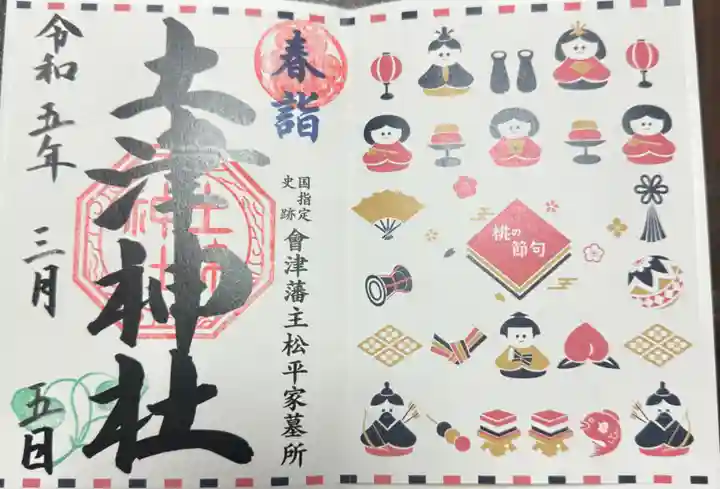 春詣
国指定
史跡
會津藩主松平家墓所
土津神社
令和五年三月五日
桃の
節句